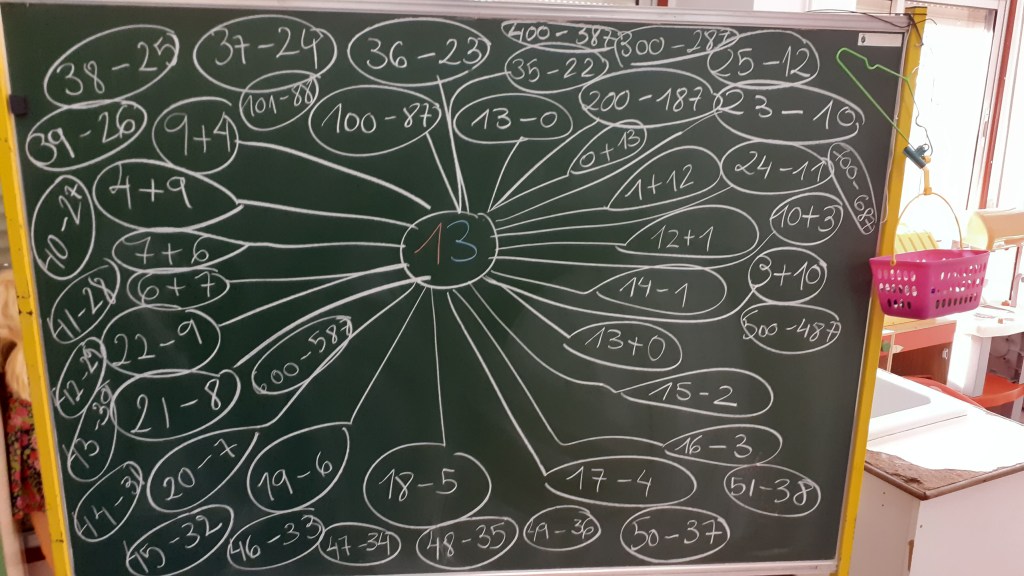 400-387
300-287
38-25
37-24
36-23
35-22
25-12
101-88
200-187
23-10
39-26
9+4
100-87
13-0
0+13
24-11
4+9
1+12
10+3
7+6
13
12+1
6+7
14-1
3+10
22-9
13+0
500-487
21-8
15-2
20-7
19-6
18-5
17-4
16-3
51-38
45-32
46-33
47-34
48-35
49-36
50-37